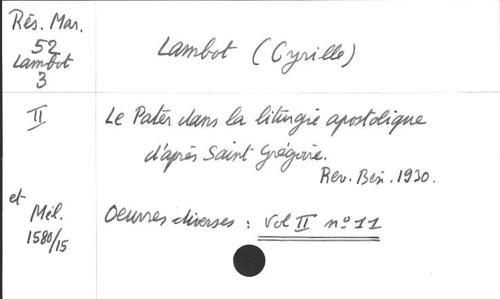 Rés. Mar.
52
Lambot
3
Lambot (Cyrille)
II
Le Pater dans la liturgie apostolique
d'après Saint Grégoire.
Rev. Bén. 1930.
et
Mél.
1580/15
Oeuvres diverses : Vol II nº 11